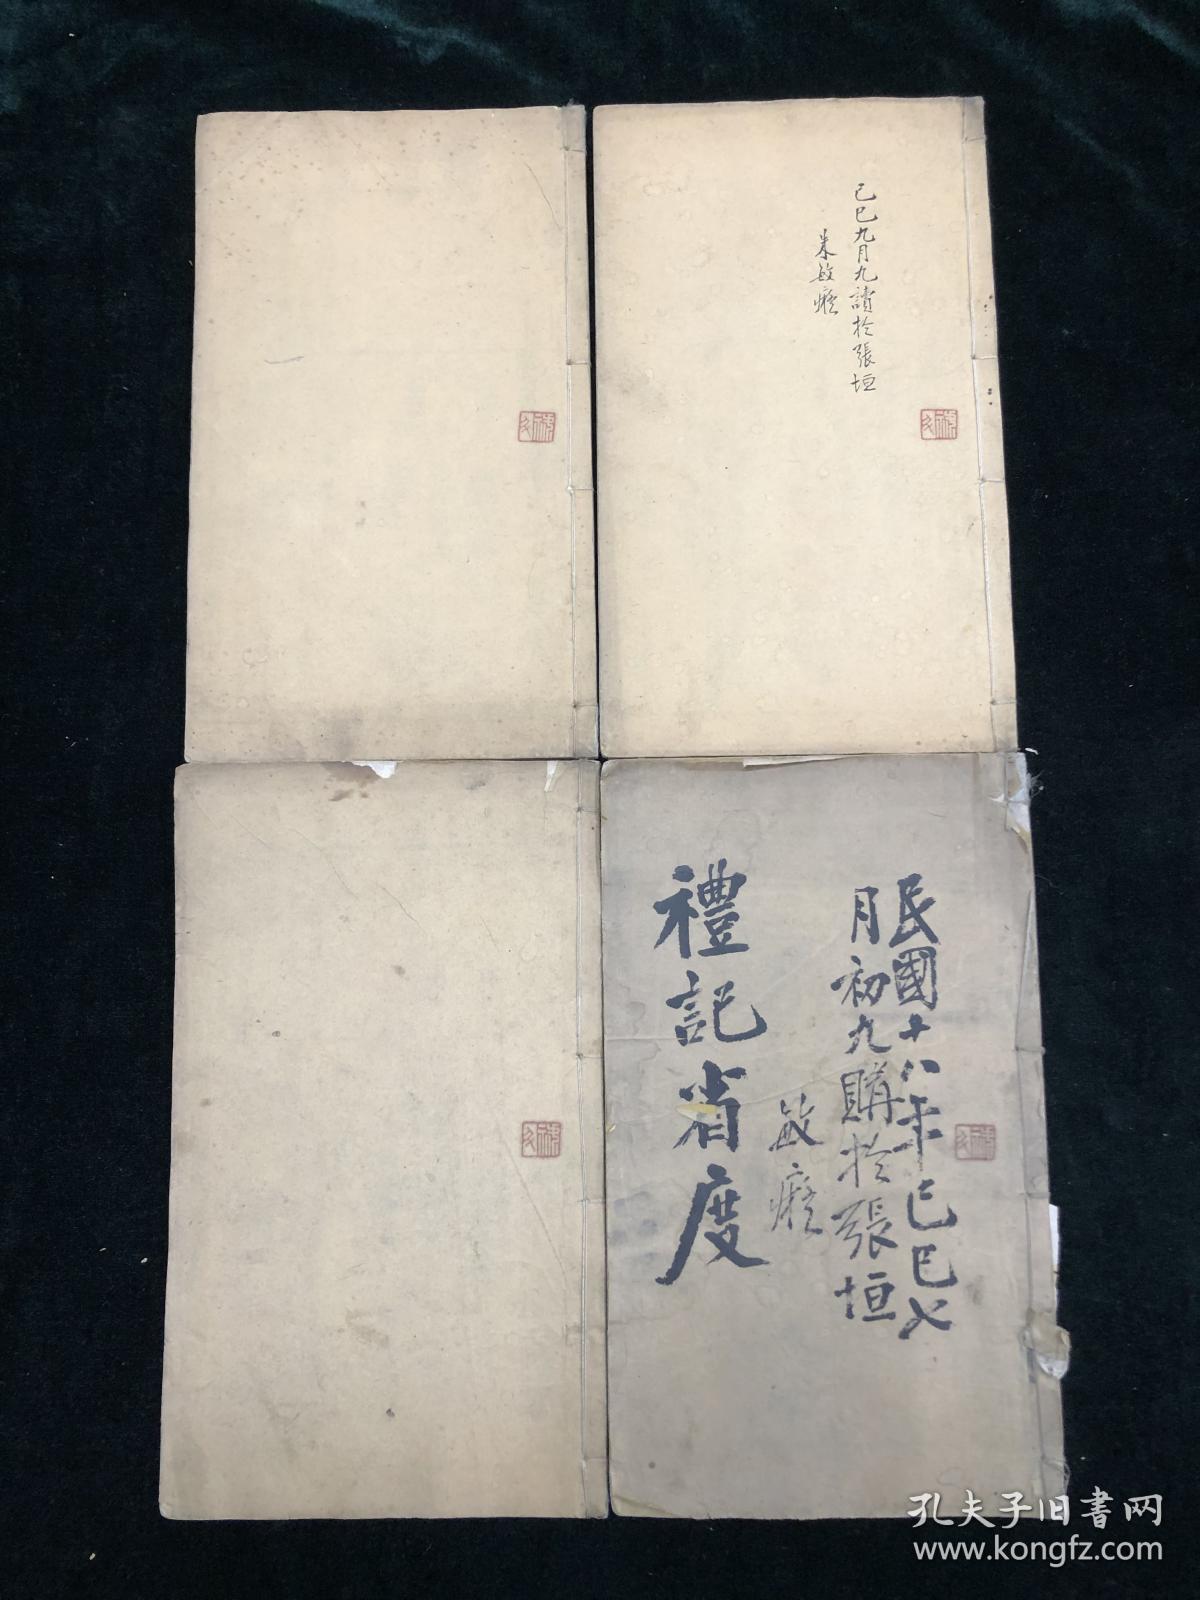 己巳九月九讀於張垣
朱敏癡
民國十八年己巳七
月初九購於張垣
敏癡
禮記省度
孔夫子旧书网
www.kongfz.com